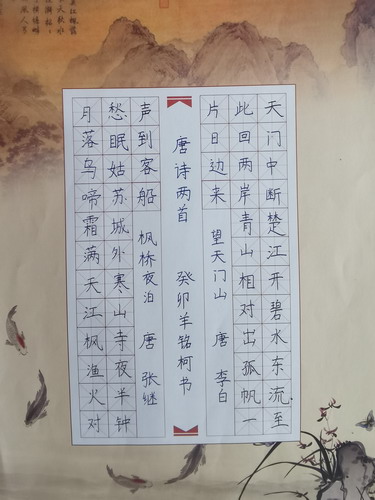 天门中断楚江开碧水东流至
此回两岸青山相对出孤帆一
片日边来 望天门山 唐 李白
唐诗两首 癸卯羊铭柯书
月落乌啼霜满天江枫渔火对
愁眠姑苏城外寒山寺夜半钟
声到客船 枫桥夜泊 唐 张继